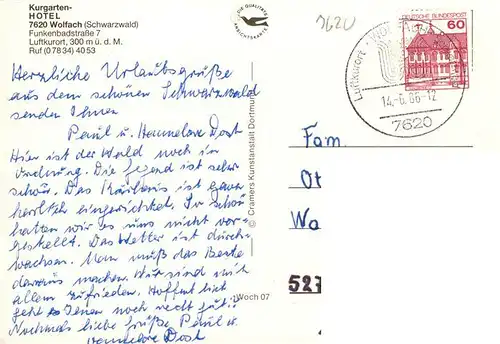 Kurgarten-
HOTEL
7620 Wolfach (Schwarzwald)
Funkenbadstraße 7
Luftkurort, 300 m ü. d. M.
Ruf (0 78 34) 40 53
DIE QUALITÄTS
ANSICHTSKARTE
7620
DEUTSCHE BUNDESPOST
60
Luftkurort
14.-6.86-12
7620
Herzliche Urlaubsgrüße
aus dem schönen Schwarzwald
senden Ihnen
Paul u. Hannelore Dost
Hier ist der Wald noch in
Ordnung. Die Gegend ist sehr
schön. Das Kurhaus ist ganz
herrlich eingerichtet. So schön
hatten wir es uns nicht vor-
gestellt. Das Wetter ist durch-
wachsen. Man muß das Beste
daraus machen. Wir sind mit
allem zufrieden. Hoffentlich
geht es Ihnen noch recht gut!!
Nochmals liebe Grüße Paul u.
Hannelore Dost
© Cramers Kunstanstalt Dortmund
Woch 07
Fam.
Ot
Wa
527